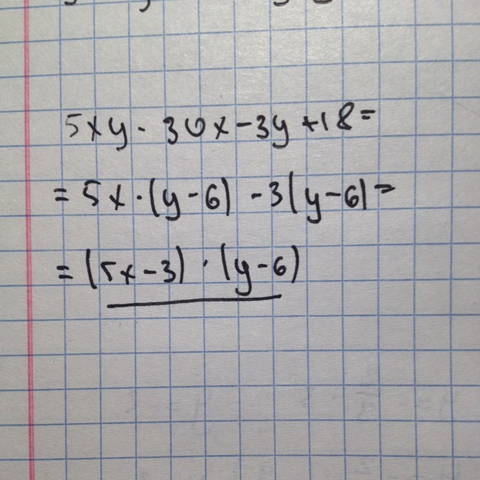 5xy - 30x - 3y + 18 =
= 5x · (y - 6) - 3(y - 6) =
= (5x - 3) · (y - 6)